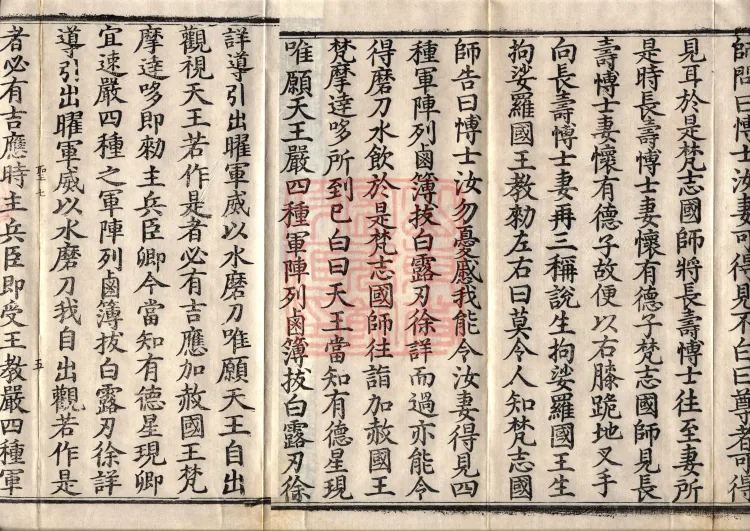 師問曰博士汝妻可得見不白曰尊者可得
見耳於是梵志國師將長壽博士往至妻所
是時長壽博士妻懷有德子梵志國師見長
壽博士妻懷有德子故便以右膝跪地叉手
向長壽博士妻再三稱說生拘娑羅國王生
拘娑羅國王教勑左右曰莫令人知梵志國
師告曰博士汝勿憂慼我能令汝妻得見四
種軍陣列鹵簿拔白露刃徐詳而過亦能令
得磨刀水飲於是梵志國師往詣加赦國王
梵摩達哆所到已白曰天王當知有德星現
唯願天王嚴四種軍陣列鹵簿拔白露刃徐
詳導引出曜軍威以水磨刀唯願天王自出
觀視天王若作是者必有吉應加赦國王梵
摩達哆即勑主兵臣卿今當知有德星現卿
宜速嚴四種之軍陣列鹵簿拔白露刃徐詳
導引出曜軍威以水磨刀我自出觀若作是
聖七 五
者必有吉應時主兵臣即受王教嚴四種軍